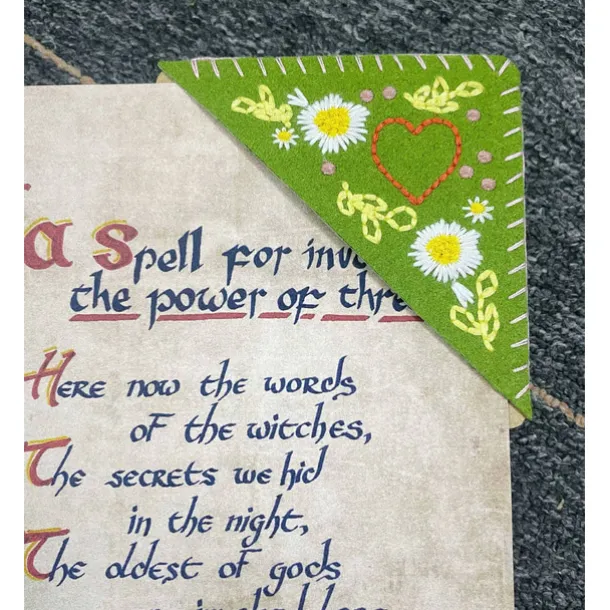 a spell for
the power of
Here now the words
of the witches,
The secrets we hid
in the night,
The oldest of gods